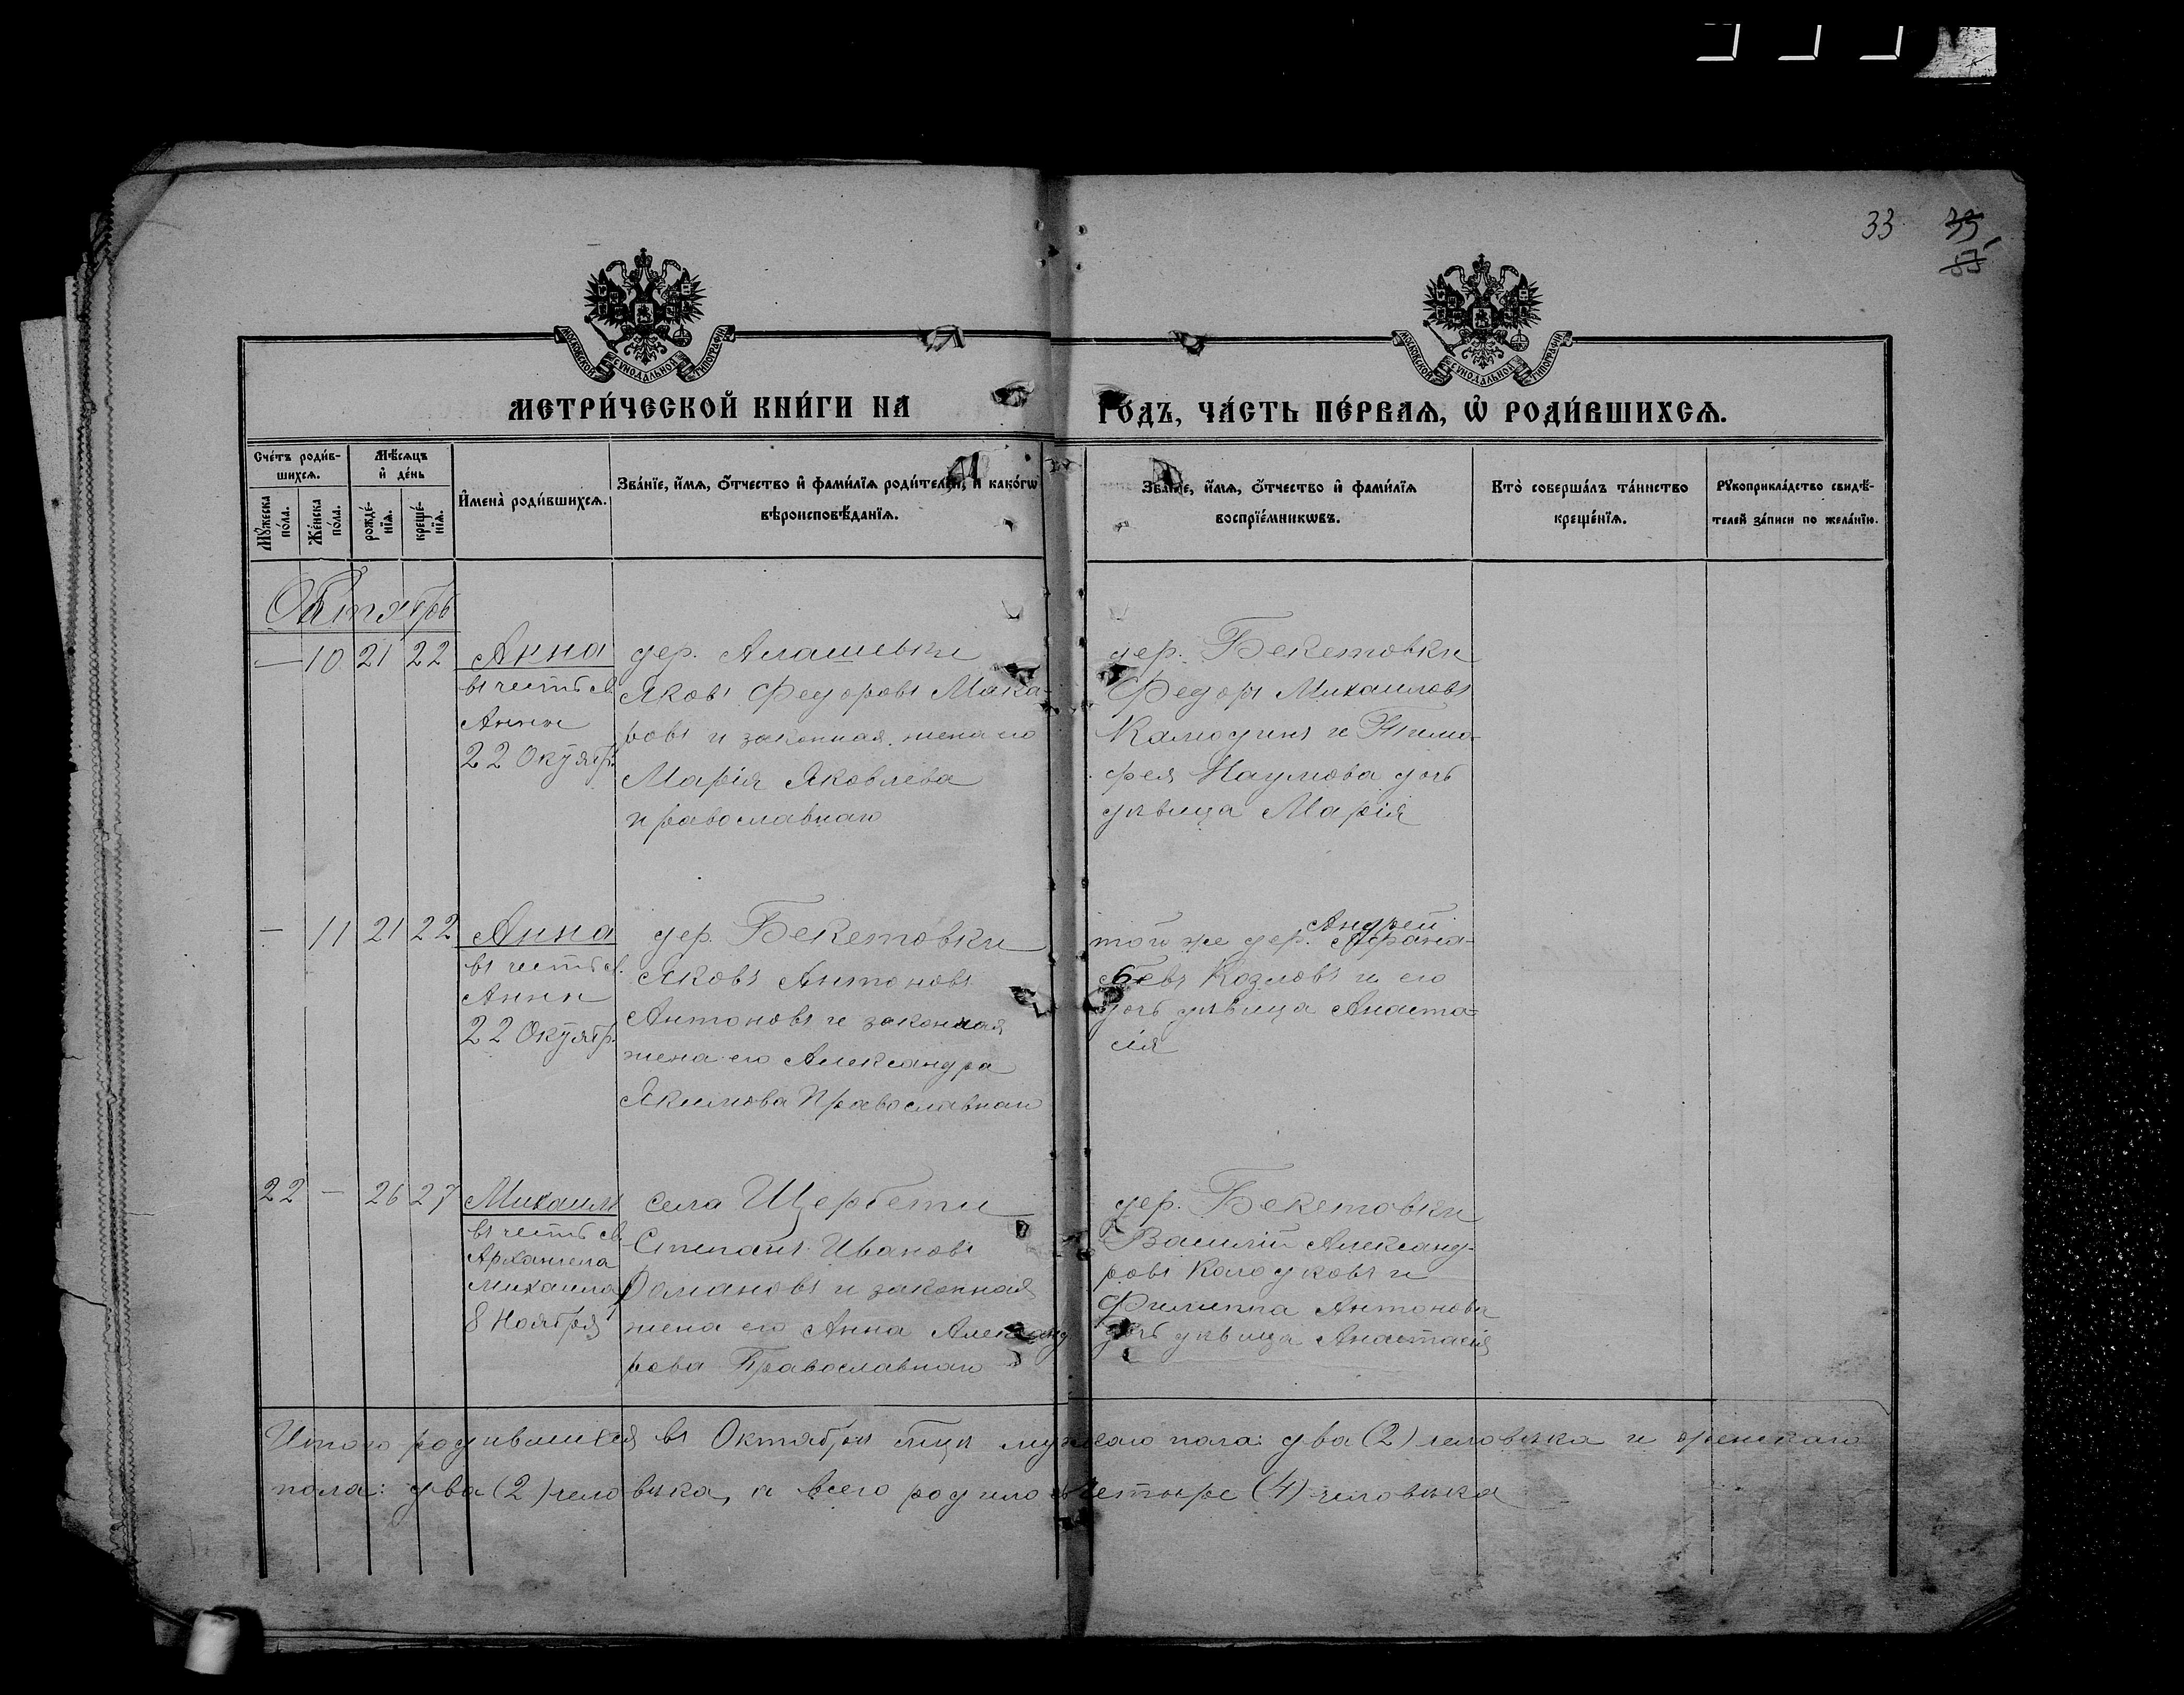 33 39
57
МОСКОВСКОЙ СѴНОДАЛЬНОЙ ТИПОГРАФІИ
МОСКОВСКОЙ СѴНОДАЛЬНОЙ ТИПОГРАФІИ
МЕТРИ́ЧЕСКОЙ КНИ́ГИ НА ГО́ДЪ, ЧА́СТЬ ПЕ́РВАѦ, Ѡ҆ РОДИ́ВШИХСѦ.
Сче́тъ роди́в-
шихсѧ.
Мꙋ́жеска
по́ла.
Же́нска
по́ла.
Мѣ́сѧцъ
и҆ де́нь
рожде́-
нїѧ.
креще́-
нїѧ.
И҆мена̀ роди́вшихсѧ.
Зва́нїе, и҆́мѧ, ѻ҆́тчество и҆ фами́лїѧ роди́телей, и҆ како́гѡ
вѣроисповѣ́данїѧ.
Зва́нїе, и҆́мѧ, ѻ҆́тчество и҆ фами́лїѧ
воспрїе́мникѡвъ.
Кто̀ соверша́лъ та́инство
креще́нїѧ.
Рꙋкоприкла́дство свидѣ́-
телей за́писи по жела́нїю.
Октябрь
— 10 21 22
Анна
въ честь св.
Анны
22 Октябр.
дер. Алашевки
Яковъ Федоровъ Мака-
ровъ и законная жена его
Марія Яковлева
православнаго
дер. Бекетовки
Федоръ Михаиловъ
Камодинъ и Тимо-
фея Наумова дочь
дѣвица Марія
— 11 21 22
Анна
въ честь св.
Анны
22 Октябр.
дер. Бекетовки
Яковъ Антоновъ
Антоновъ и законная
жена его Александра
Якимова Православнаго
Андрей
той же дер. Афана-
сьевъ Козловъ и его
дочь дѣвица Анаста-
сія
22 — 26 27
Михаилъ
въ честь св.
Архангела
Михаила
8 Ноября
села Щербети
Степанъ Ивановъ
Романовъ и законная
жена его Анна Александ
рова Православнаго
дер. Бекетовки
Василій Александ-
ровъ Колодковъ и
Филиппа Антонова
дочь дѣвица Анастасія
Итого родившихся въ Октябрѣ м-цѣ мужескаго пола: два (2) человѣка и женскаго
пола: два (2) человѣка, а всего родилось четыре (4) человѣка